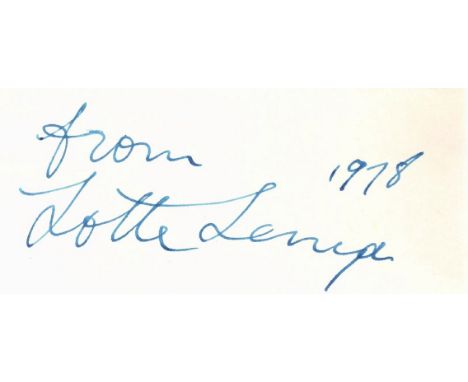 from
1978
Lotte Lenya